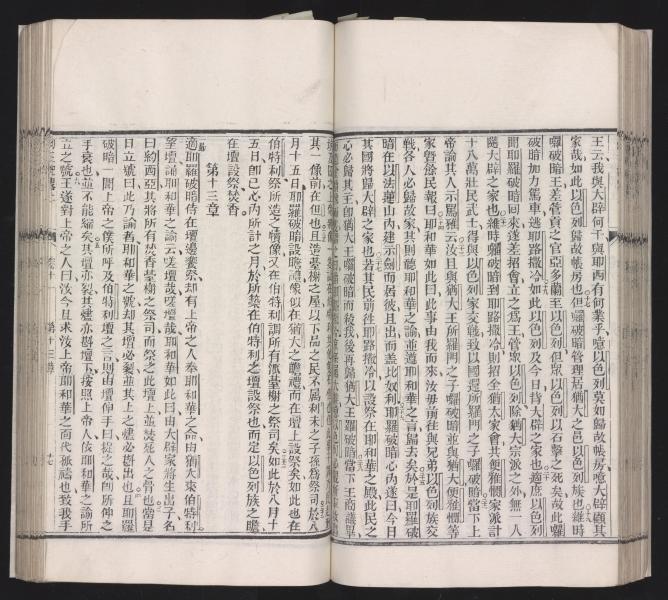 王云我與大辟何干與耶西有何業乎噫以色列莫如歸故帳房噫大辟顧其
家哉如此以色列歸故帳房也但囉破暗管理居猶大之邑以色列族也維時
囉破暗王差管貢之官亞多蘭至以色列但眾以色列以石擊之死矣故此囉
破暗加力駕車逃耶路撒冷如此以色列及今日背大辟之家也適應以色列
聞耶羅破暗回來遂差招會立之為王管眾以色列除猶大宗派之外無一人
隨大辟之家也維時囉破暗到耶路撒冷則招全猶太家會其便雅憫家派計
十八萬壯民武士得與以色列家交戰致以國還所羅門之子囉破暗當下上
帝諭其人示馬雅云汝且與猶大王所羅門之子囉破暗並與猶大便雅憫等
家暨餘民報曰耶和華如此曰此事由我而來汝毋前往與兄弟以色列族交
戰各人必歸故家其則聽耶和華之諭並遵耶和華之言歸去矣於是耶羅破
暗在以法蓮山內建示劍而居彼且出而蓋比奴利耶羅破暗心內遂曰今日
其國將歸大辟之家也若其民前往耶路撒冷以設祭在耶和華之殿此民之
心必歸其王即猶大王囉破暗而殺我後再歸猶大王囉破暗當下王商議畢
其一條前在但也且造墓樹之屋以下品之民不屬利未之子孫為祭司於八
月十五日耶羅破暗設瞻禮像似在猶大之瞻禮而在壇上設祭矣如此也在
伯特利祭所造之犢像又在伯特利調所有墓樹之祭司矣如此於八月十
五日即己心內所計之月於所築在伯特利之壇設祭也而定以色列族之瞻
在壇設祭焚香
第十三章
適耶羅破暗侍在壇邊獻祭却有上帝之人奉耶和華之命由猶大來伯特利
望壇誦耶和華之諭云嗟壇哉嗟壇哉耶和華如此曰由大辟家將生出子名
曰約西亞其將所有焚香墓樹之祭司而祭之此壇上並焚延人之骨也當是
日立號曰此乃諭者耶和華之號却其壇必裂並其上之爐必斟出也且耶羅
破暗一聞上帝之僕所呼及伯特利壇之言則由壇伸手曰捉之哉即所伸之
手衰也並不能縮矣其壇亦裂其爐亦斟壇下按照上帝人依耶和華之諭所
立之號王遂對上帝之人曰汝今且求汝上帝耶和華之面代我禱也致我手
第十三章